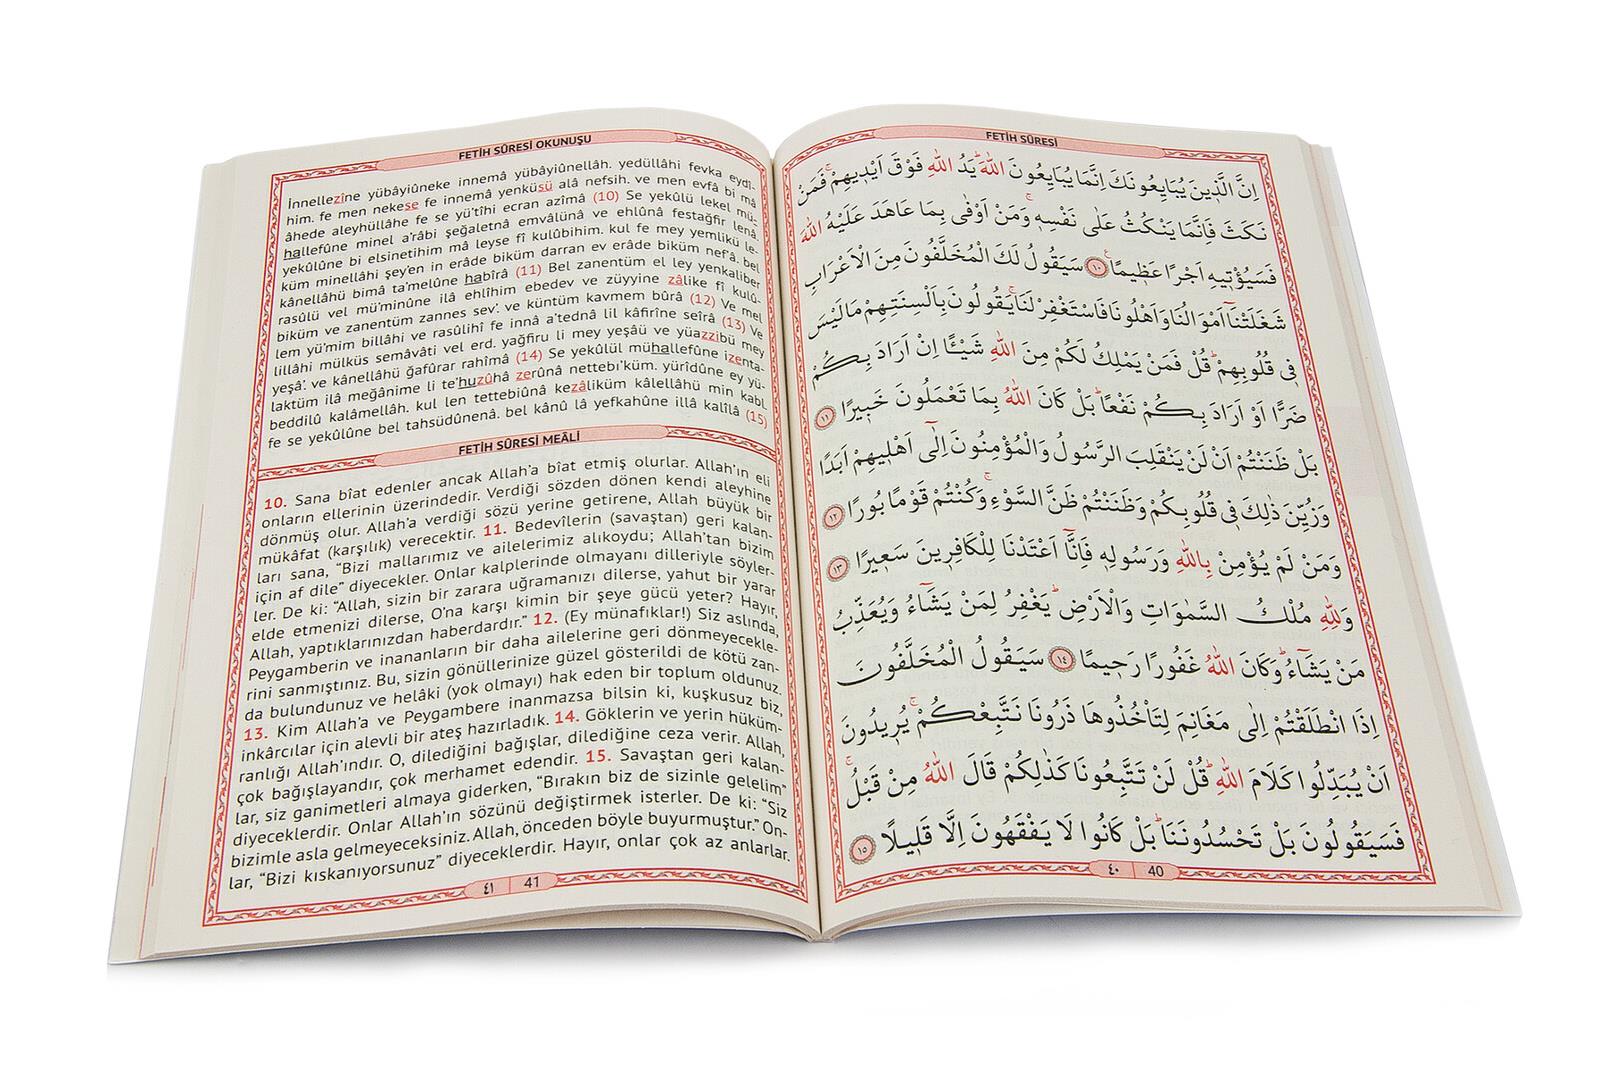 FETİH SÛRESİ OKUNUŞU
İnnellezîne yübâyiûneke innemâ yübâyiûnellâh. yedüllâhi fevka eydî-
him. fe men nekese fe innemâ yenküsü alâ nefsih. ve men evfâ bi mâ
âhede aleyhüllâhe fe se yü'tîhi ecran azîmâ (10) Se yekûlü lekel mü-
hallefûne minel a'râbi şeğaletnâ emvâlünâ ve ehlûnâ festağfir lenâ.
yekûlûne bi elsinetihim mâ leyse fî kulûbihim. kul fe mey yemlikü le-
küm minellâhi şey'en in erâde biküm darran ev erâde biküm nef'â. bel
kânellâhü bimâ ta'melûne habîrâ (11) Bel zanentüm el ley yenkaliber
rasûlü vel mü'minûne ilâ ehlîhim ebedev ve züyyine zâlike fî kulû-
biküm ve zanentüm zannes sev'. ve küntüm kavmem bûrâ (12) Ve mel
lem yü'mim billâhi ve rasûlihî fe innâ a'tednâ lil kâfirîne seîrâ (13) Ve
lillâhi mülküs semâvâti vel erd. yağfiru li mey yeşâü ve yüazzibü mey
yeşâ'. ve kânellâhü ğafûrar rahîmâ (14) Se yekûlül mühallefûne izenta-
laktüm ilâ meğânime li te'huzûhâ zerûnâ nettebı'küm. yürîdûne ey yü-
beddilû kalâmellâh. kul len tettebiûnâ kezâliküm kâlellâhü min kabl.
fe se yekûlûne bel tahsüdûnenâ. bel kânû lâ yefkahûne illâ kalîlâ (15)
FETİH SÛRESİ MEÂLİ
10. Sana bîat edenler ancak Allah'a bîat etmiş olurlar. Allah'ın eli
onların ellerinin üzerindedir. Verdiği sözden dönen kendi aleyhine
dönmüş olur. Allah'a verdiği sözü yerine getirene, Allah büyük bir
mükâfat (karşılık) verecektir. 11. Bedevîlerin (savaştan) geri kalan-
ları sana, “Bizi mallarımız ve ailelerimiz alıkoydu; Allah'tan bizim
için af dile” diyecekler. Onlar kalplerinde olmayanı dilleriyle söyler-
ler. De ki: “Allah, sizin bir zarara uğramanızı dilerse, yahut bir yarar
elde etmenizi dilerse, O'na karşı kimin bir şeye gücü yeter? Hayır,
Allah, yaptıklarınızdan haberdardır.” 12. (Ey münafıklar!) Siz aslında,
Peygamberin ve inananların bir daha ailelerine geri dönmeyecekle-
rini sanmıştınız. Bu, sizin gönüllerinize güzel gösterildi de kötü zan-
da bulundunuz ve helâki (yok olmayı) hak eden bir toplum oldunuz.
13. Kim Allah'a ve Peygambere inanmazsa bilsin ki, kuşkusuz biz,
inkârcılar için alevli bir ateş hazırladık. 14. Göklerin ve yerin hüküm-
ranlığı Allah'ındır. O, dilediğini bağışlar, dilediğine ceza verir. Allah,
çok bağışlayandır, çok merhamet edendir. 15. Savaştan geri kalan-
lar, siz ganimetleri almaya giderken, “Bırakın biz de sizinle gelelim”
diyeceklerdir. Onlar Allah'ın sözünü değiştirmek isterler. De ki: “Siz
bizimle asla gelmeyeceksiniz. Allah, önceden böyle buyurmuştur.” On-
lar, “Bizi kıskanıyorsunuz” diyeceklerdir. Hayır, onlar çok az anlarlar.
٤١ 41
FETİH SÛRESİ
اِنَّ الَّذِينَ يُبَايِعُونَكَ اِنَّمَا يُبَايِعُونَ اللّٰهَ يَدُ اللّٰهِ فَوْقَ اَيْدِيهِمْ فَمَنْ
نَكَثَ فَاِنَّمَا يَنْكُثُ عَلٰى نَفْسِهِ وَمَنْ اَوْفٰى بِمَا عَاهَدَ عَلَيْهُ اللّٰهَ
فَسَيُؤْتِيهِ اَجْرًا عَظِيمًا ١٠ سَيَقُولُ لَكَ الْمُخَلَّفُونَ مِنَ الْاَعْرَابِ
شَغَلَتْنَا اَمْوَالُنَا وَاَهْلُونَا فَاسْتَغْفِرْ لَنَا يَقُولُونَ بِاَلْسِنَتِهِمْ مَا لَيْسَ
فِي قُلُوبِهِمْ قُلْ فَمَنْ يَمْلِكُ لَكُمْ مِنَ اللّٰهِ شَيْـًٔا اِنْ اَرَادَ بِكُمْ
ضَرًّا اَوْ اَرَادَ بِكُمْ نَفْعًا بَلْ كَانَ اللّٰهُ بِمَا تَعْمَلُونَ خَبِيرًا ١١
بَلْ ظَنَنْتُمْ اَنْ لَنْ يَنْقَلِبَ الرَّسُولُ وَالْمُؤْمِنُونَ اِلٰٓى اَهْلِيهِمْ اَبَدًا
وَزُيِّنَ ذٰلِكَ فِي قُلُوبِكُمْ وَظَنَنْتُمْ ظَنَّ السَّوْءِ وَكُنْتُمْ قَوْمًا بُورًا ١٢
وَمَنْ لَمْ يُؤْمِنْ بِاللّٰهِ وَرَسُولِهِ فَاِنَّٓا اَعْتَدْنَا لِلْكَافِرِينَ سَعِيرًا ١٣
وَلِلّٰهِ مُلْكُ السَّمٰوَاتِ وَالْاَرْضِ يَغْفِرُ لِمَنْ يَشَٓاءُ وَيُعَذِّبُ
مَنْ يَشَٓاءُ وَكَانَ اللّٰهُ غَفُورًا رَحِيمًا ١٤ سَيَقُولُ الْمُخَلَّفُونَ
اِذَا انْطَلَقْتُمْ اِلٰى مَغَانِمَ لِتَأْخُذُوهَا ذَرُونَا نَتَّبِعْكُمْ يُرِيدُونَ
اَنْ يُبَدِّلُوا كَلَامَ اللّٰهِ قُلْ لَنْ تَتَّبِعُونَا كَذٰلِكُمْ قَالَ اللّٰهُ مِنْ قَبْلُ
فَسَيَقُولُونَ بَلْ تَحْسُدُونَنَا بَلْ كَانُوا لَا يَفْقَهُونَ اِلَّا قَلِيلًا ١٥
٤٠ 40